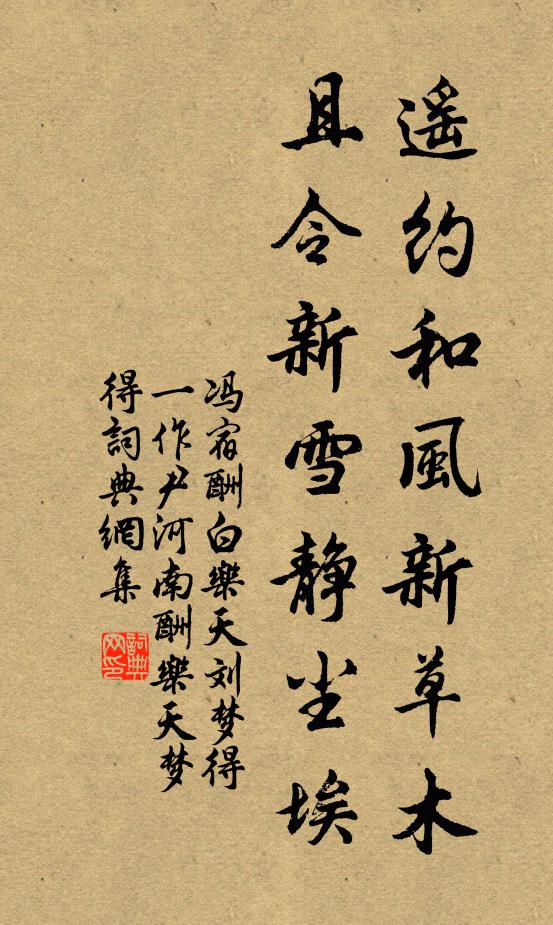 遥约和風新草木
且令新雪静尘埃
冯宿酬白樂天刘梦得
一作尹河南酬樂天梦
得詞典網集
詞典
网印